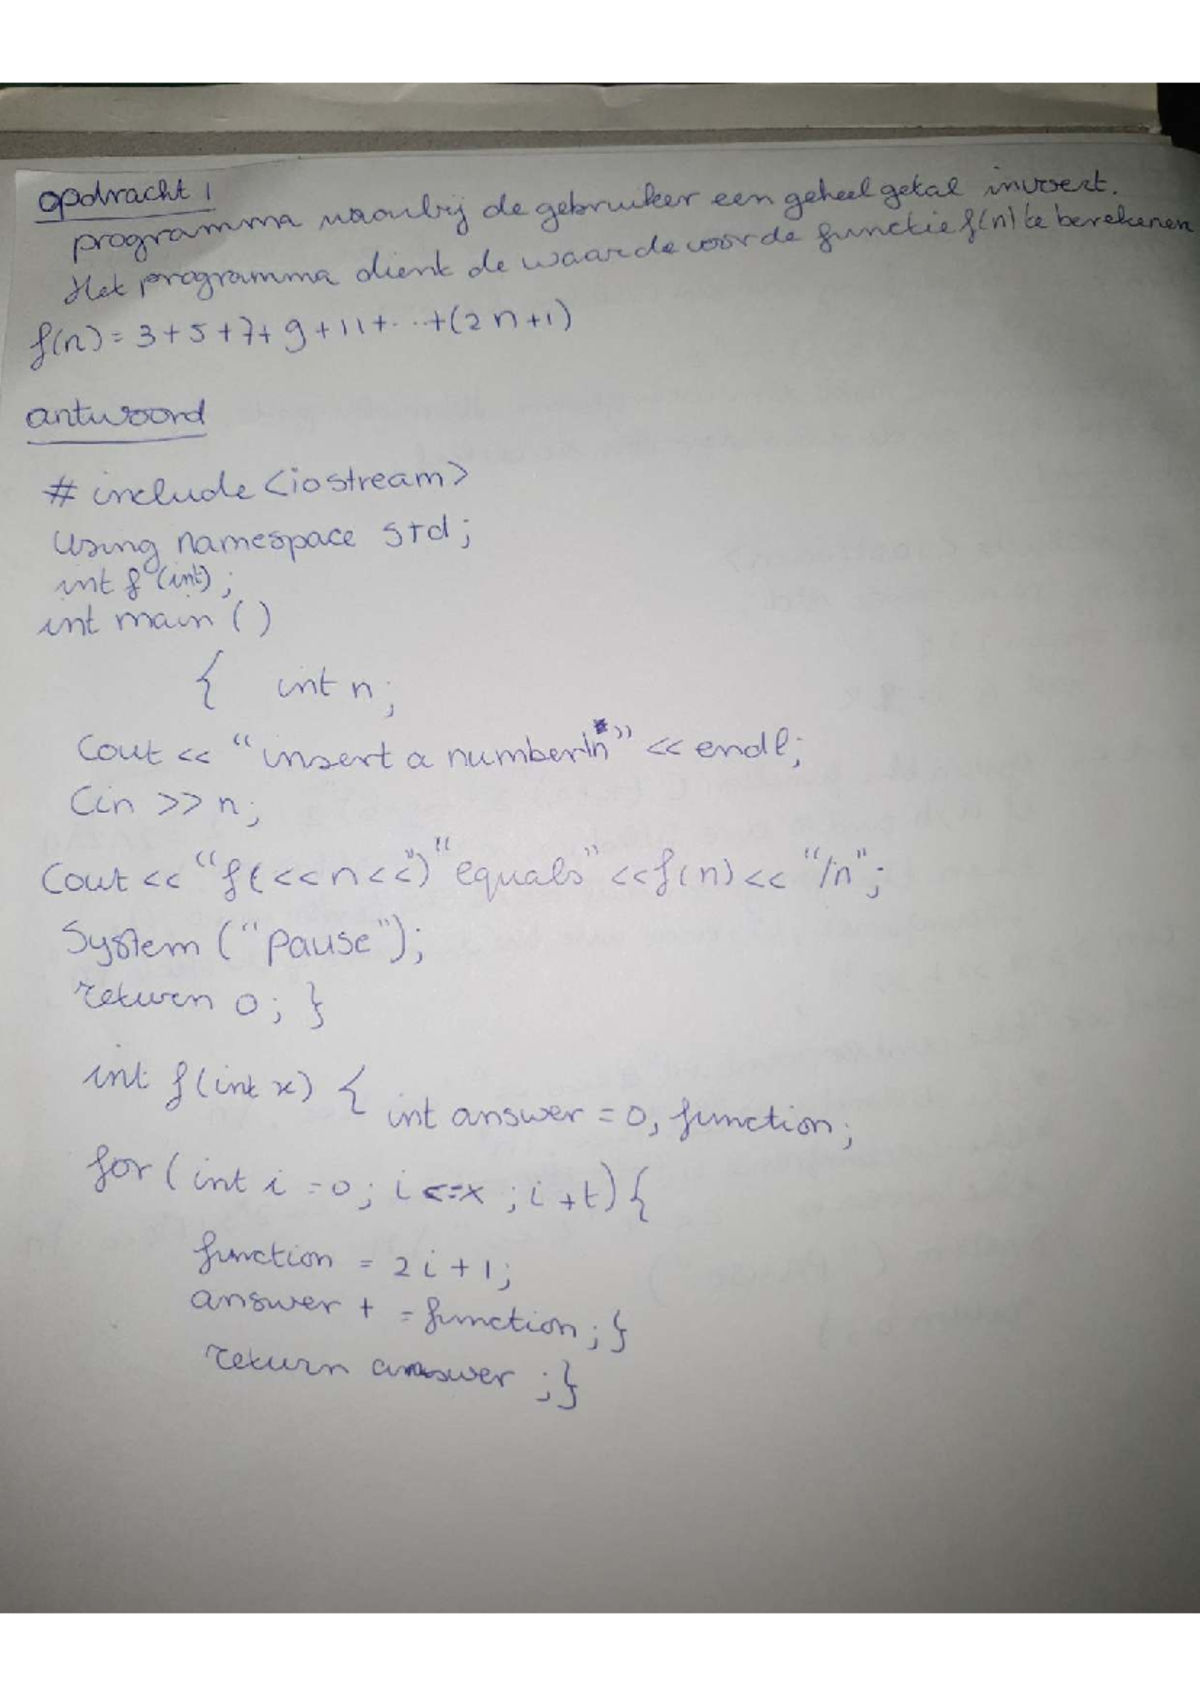 opdracht 1
programma waarbij de gebruiker een geheel getal invoert.
Het programma dient de waarde voor de functie f(n) te berekenen
f(n) = 3+5+7+9+11+...+(2n+1)
antwoord
# include <iostream>
Using namespace std;
int f (int);
int main ( )
{ int n;
Cout << "insert a number\n" << endl;
Cin >> n;
Cout << "f( << n << ")" "equals" << f(n) << "/n";
System ("pause");
return 0; }
int f(int x) { int answer = 0, function;
for ( int i = 0; i <= x ; i ++) {
function = 2i + 1;
answer + = function; }
return answer ; }